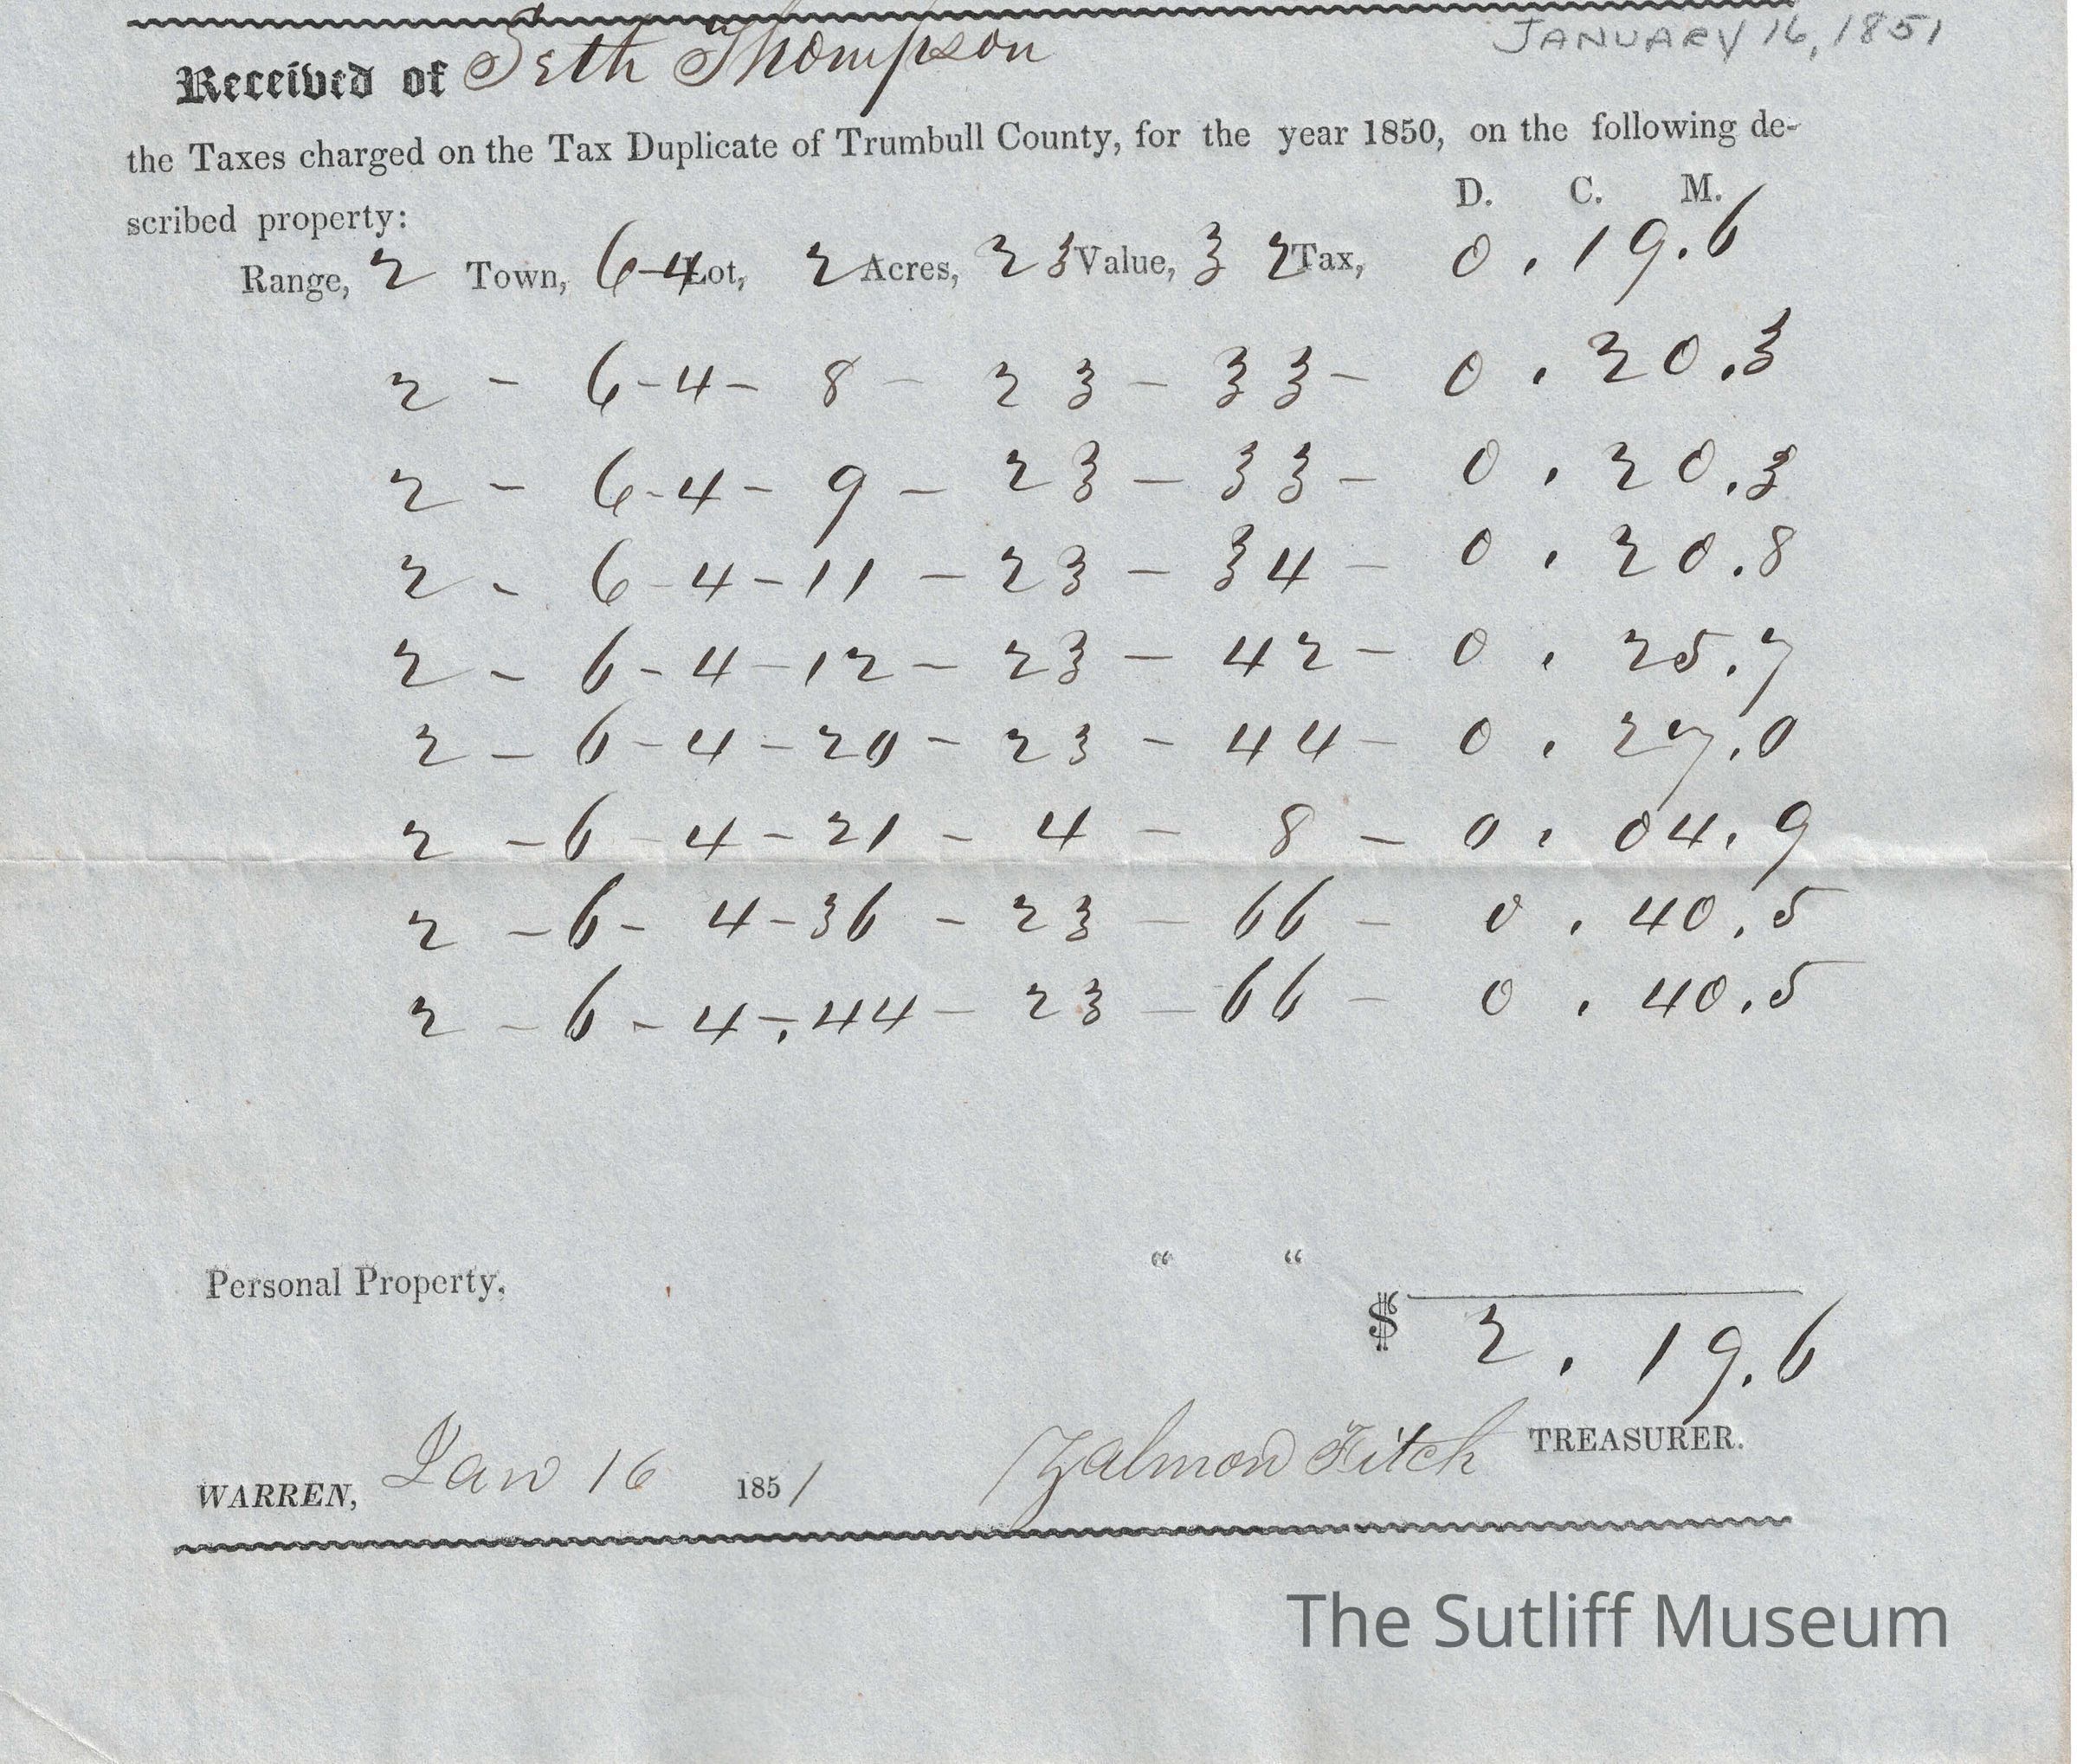 JANUARY 16, 1851
Received of Seth Thompson
the Taxes charged on the Tax Duplicate of Trumbull County, for the year 1850, on the following de-
scribed property:
D. C. M.
Range, 2 Town, 6-4 Lot, 2 Acres, 23 Value, 32 Tax, 0 . 19.6
2 - 6-4- 8 - 23 - 33 - 0 . 20.3
2 - 6-4- 9 - 23 - 33 - 0 . 20.3
2 - 6-4-11 - 23 - 34 - 0 . 20.8
2 - 6-4-12 - 23 - 42 - 0 . 25.7
2 - 6-4-20 - 23 - 44 - 0 . 27.0
2 - 6-4-21 - 4 - 8 - 0 . 04.9
2 - 6-4-36 - 23 - 66 - 0 . 40.5
2 - 6-4-.44 - 23 - 66 - 0 . 40.5
Personal Property, “ “
$ 2 . 19.6
WARREN, Jan 16 1851 Zalmon Fitch TREASURER.
The Sutliff Museum